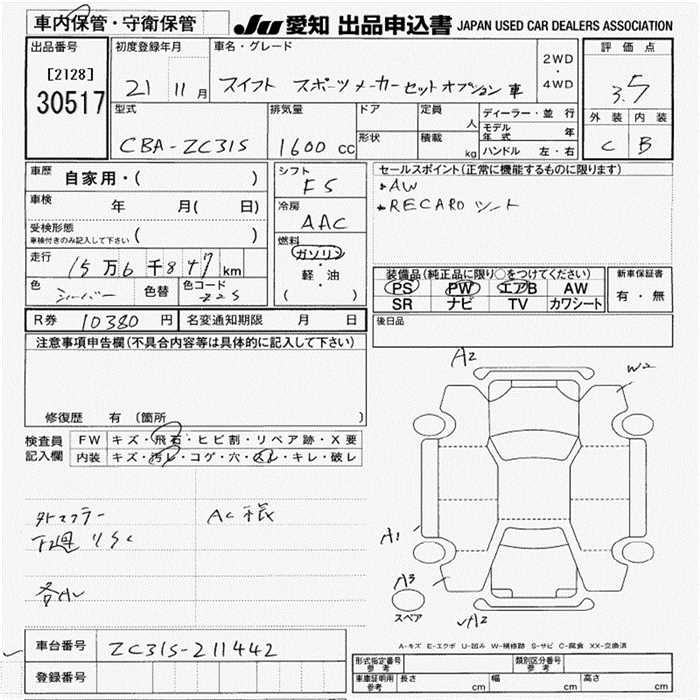 車内保管・守衛保管 JU 愛知 出品申込書 JAPAN USED CAR DEALERS ASSOCIATION
出品番号 初度登録年月 車名・グレード 評価点
[2128] 2WD・4WD
30517 21 11月 スイフト スポーツ メーカーセットオプション車 3.5
外装 内装
C B
型式 排気量 ドア 定員 人 ディーラー・並行
CBA-ZC31S 1600 cc 形状 積載 kg モデル年式 年
ハンドル 左・右
車歴 自家用・( ) シフト F5 セールスポイント(正常に機能するものに限ります)
・AW
・RECAROシート
車検 年 月( 日) 冷房 AAC
受検形態 車検付きのみ記入して下さい ( )
走行 15万6千847km 燃料 ガソリン・軽・油 ( )
色 シルバー 色替 色コード Z2S
装備品(純正品に限り○をつけてください) 新車保証書
PS PW エアB AW 有・無
SR ナビ TV カワシート
R券 10380円 名変通知期限 月 日 後日品
注意事項申告欄(不具合内容等は具体的に記入して下さい)
修復歴 有 (箇所 )
検査員記入欄 FW キズ・飛石・ヒビ割・リペア跡・X要
内装 キズ・汚レ・コゲ・穴・スレ・キレ・破レ
外マフラー AC様
下廻りSC
A2
W2
A1
A3
スペア
A2
A-キズ E-エクボ U-凹み W-補修跡 S-サビ C-腐食 XX-交換済
車台番号 ZC31S-211442
登録番号
形式指定番号 参考 類別区分番号 参考
車庫証明用 参考 長さ cm 幅 cm 高さ cm